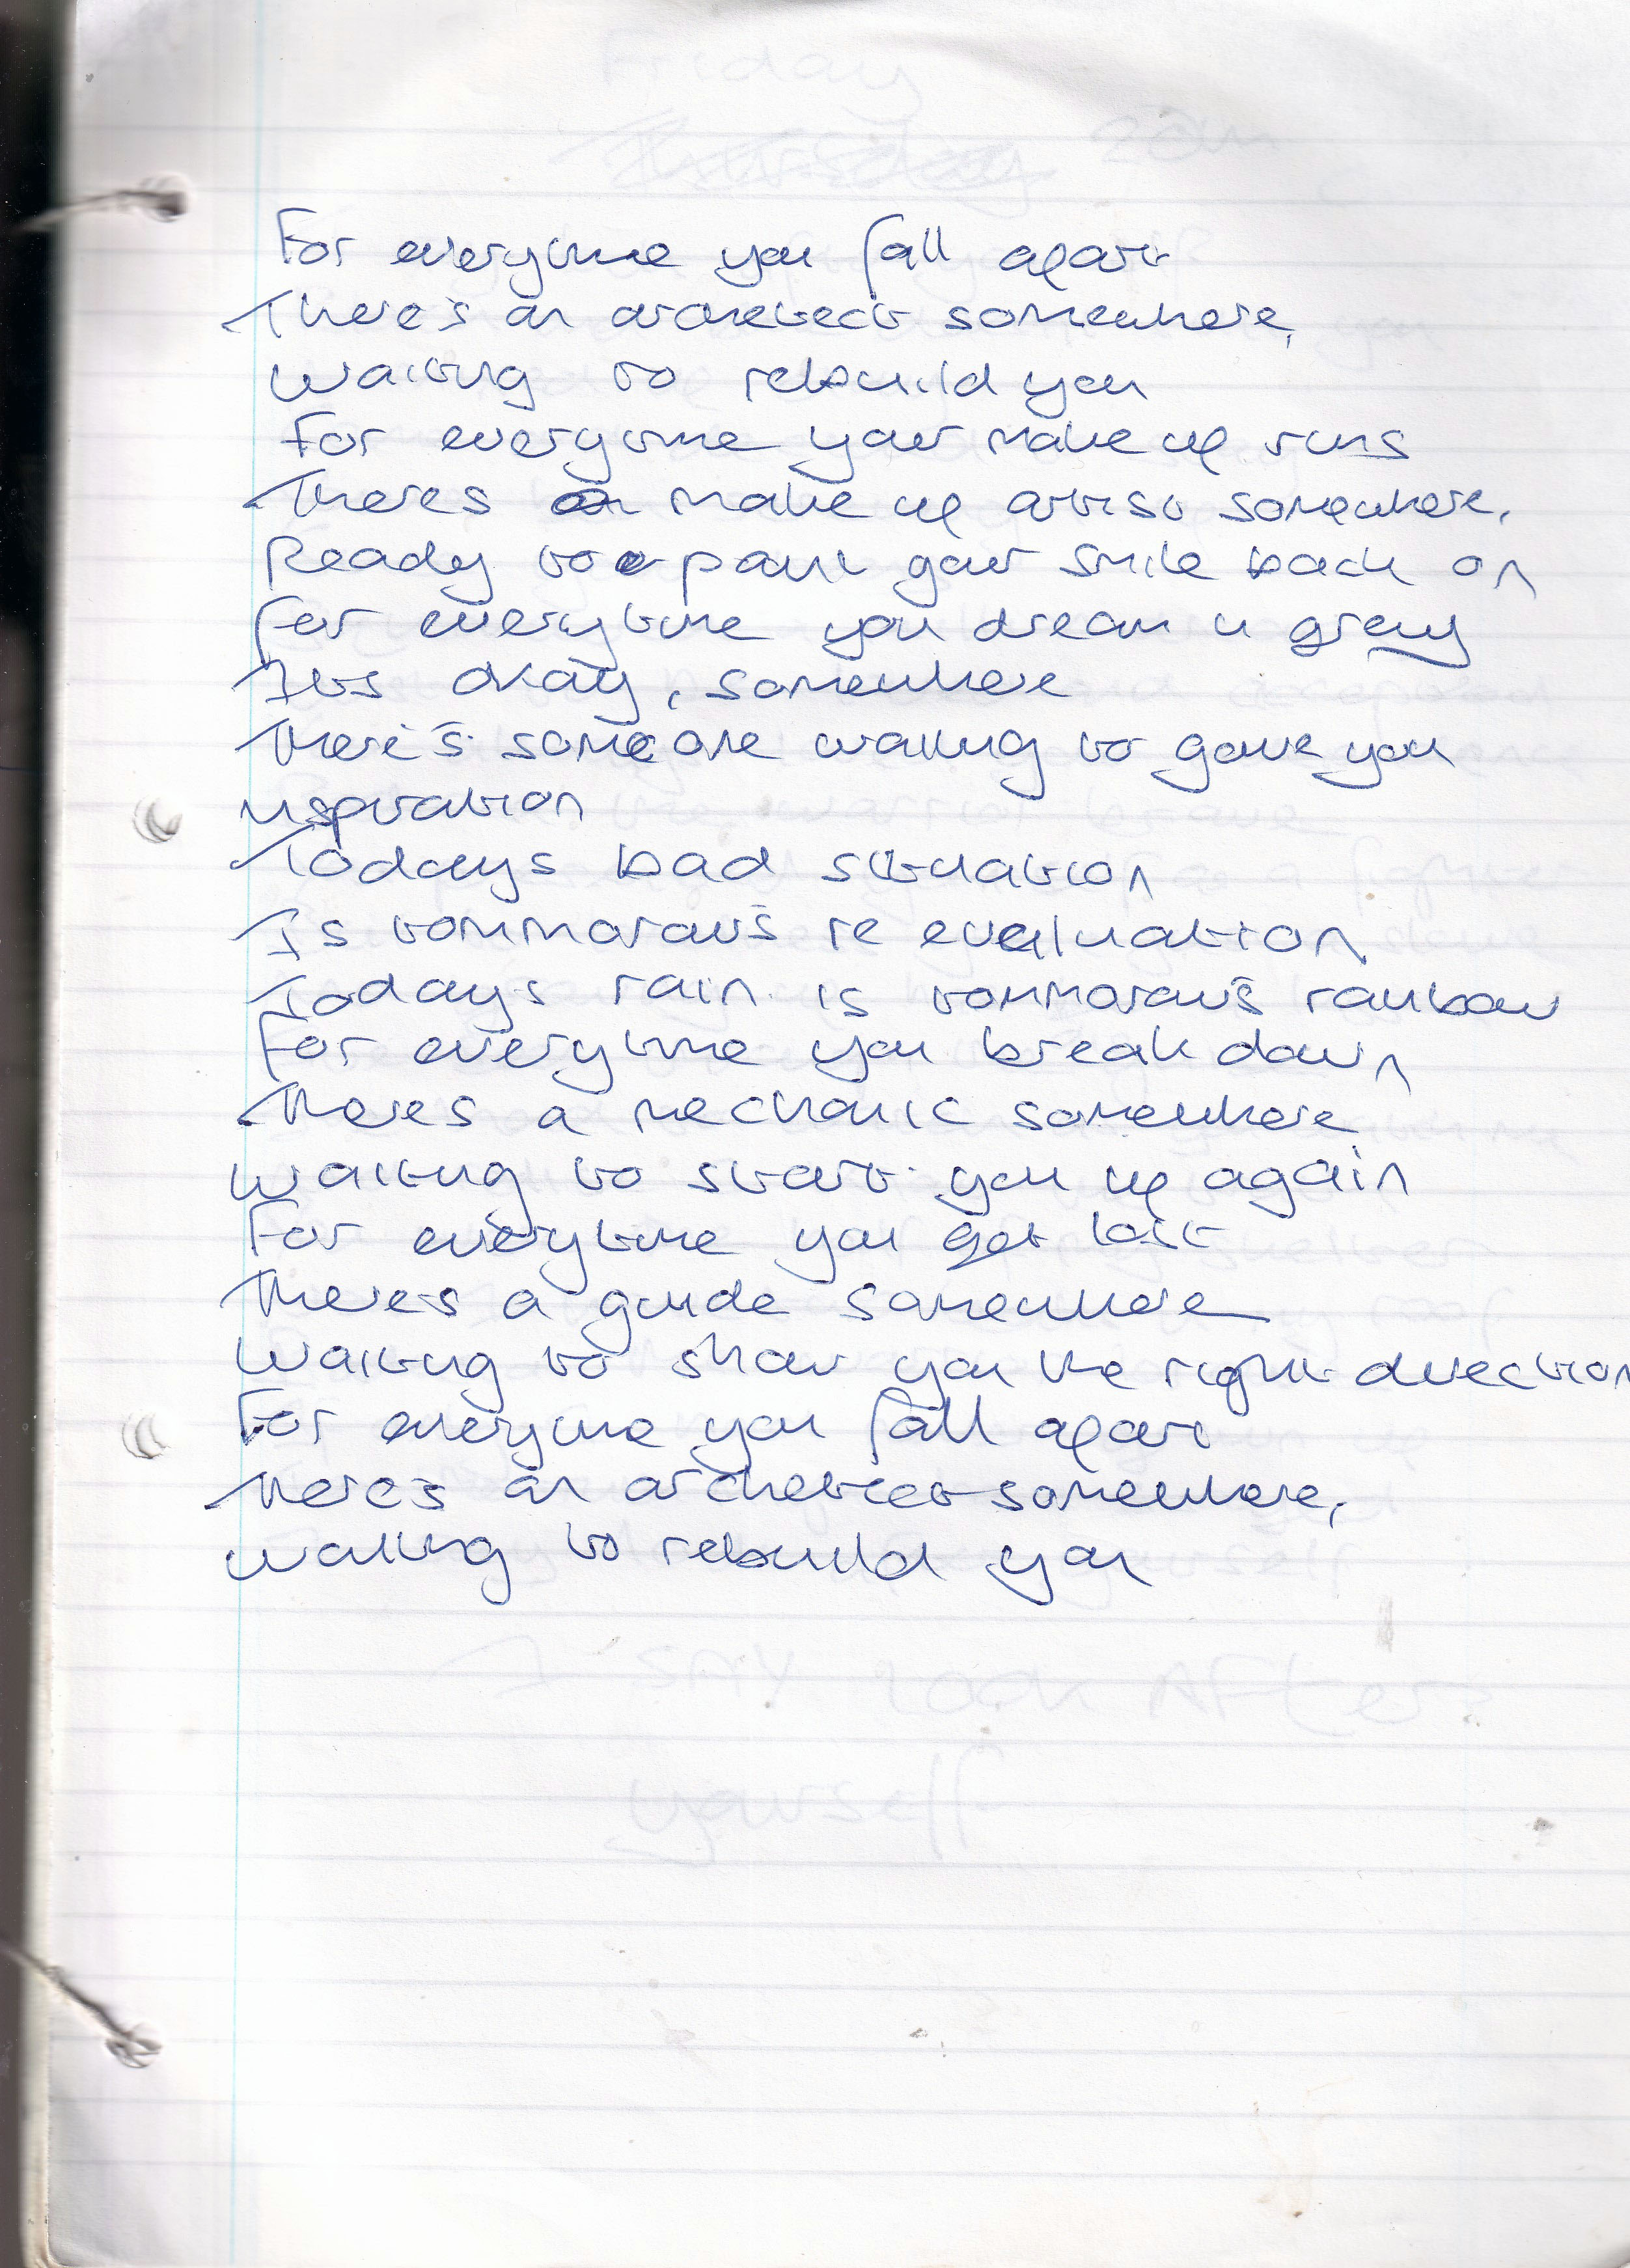 For everytime you fall apart
There's an architect somewhere,
waiting to rebuild you
For everytime your make up runs
Theres a make up artist somewhere,
Ready to paint your smile back on
for everytime you dream in grey
Its okay, somewhere
there's someone waiting to gave you
inspiration
Todays bad situation
Is tommoraw's re evaluation
Todays rain is tommoraw's rainbow
For everytime you break down
theres a mechanic somewhere
waiting to start you up again
For everytime you get lost
theres a guide somewhere
Waiting to show you the right direction
For everytime you fall apart
there's an architect somewhere,
waiting to rebuild you